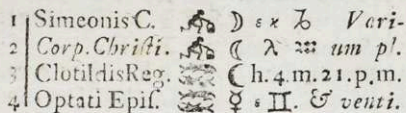 1 Simeonis C. ♒ ☽ ε κ ♑ Vari-
2 Corp. Christi. ♒ ☾ λ ♒ um pl.
3 Clotildis Reg. ♓ ☾ h. 4. m. 21. p. m.
4 Optati Epiſ. ♓ ☿ s ♊. & venti.